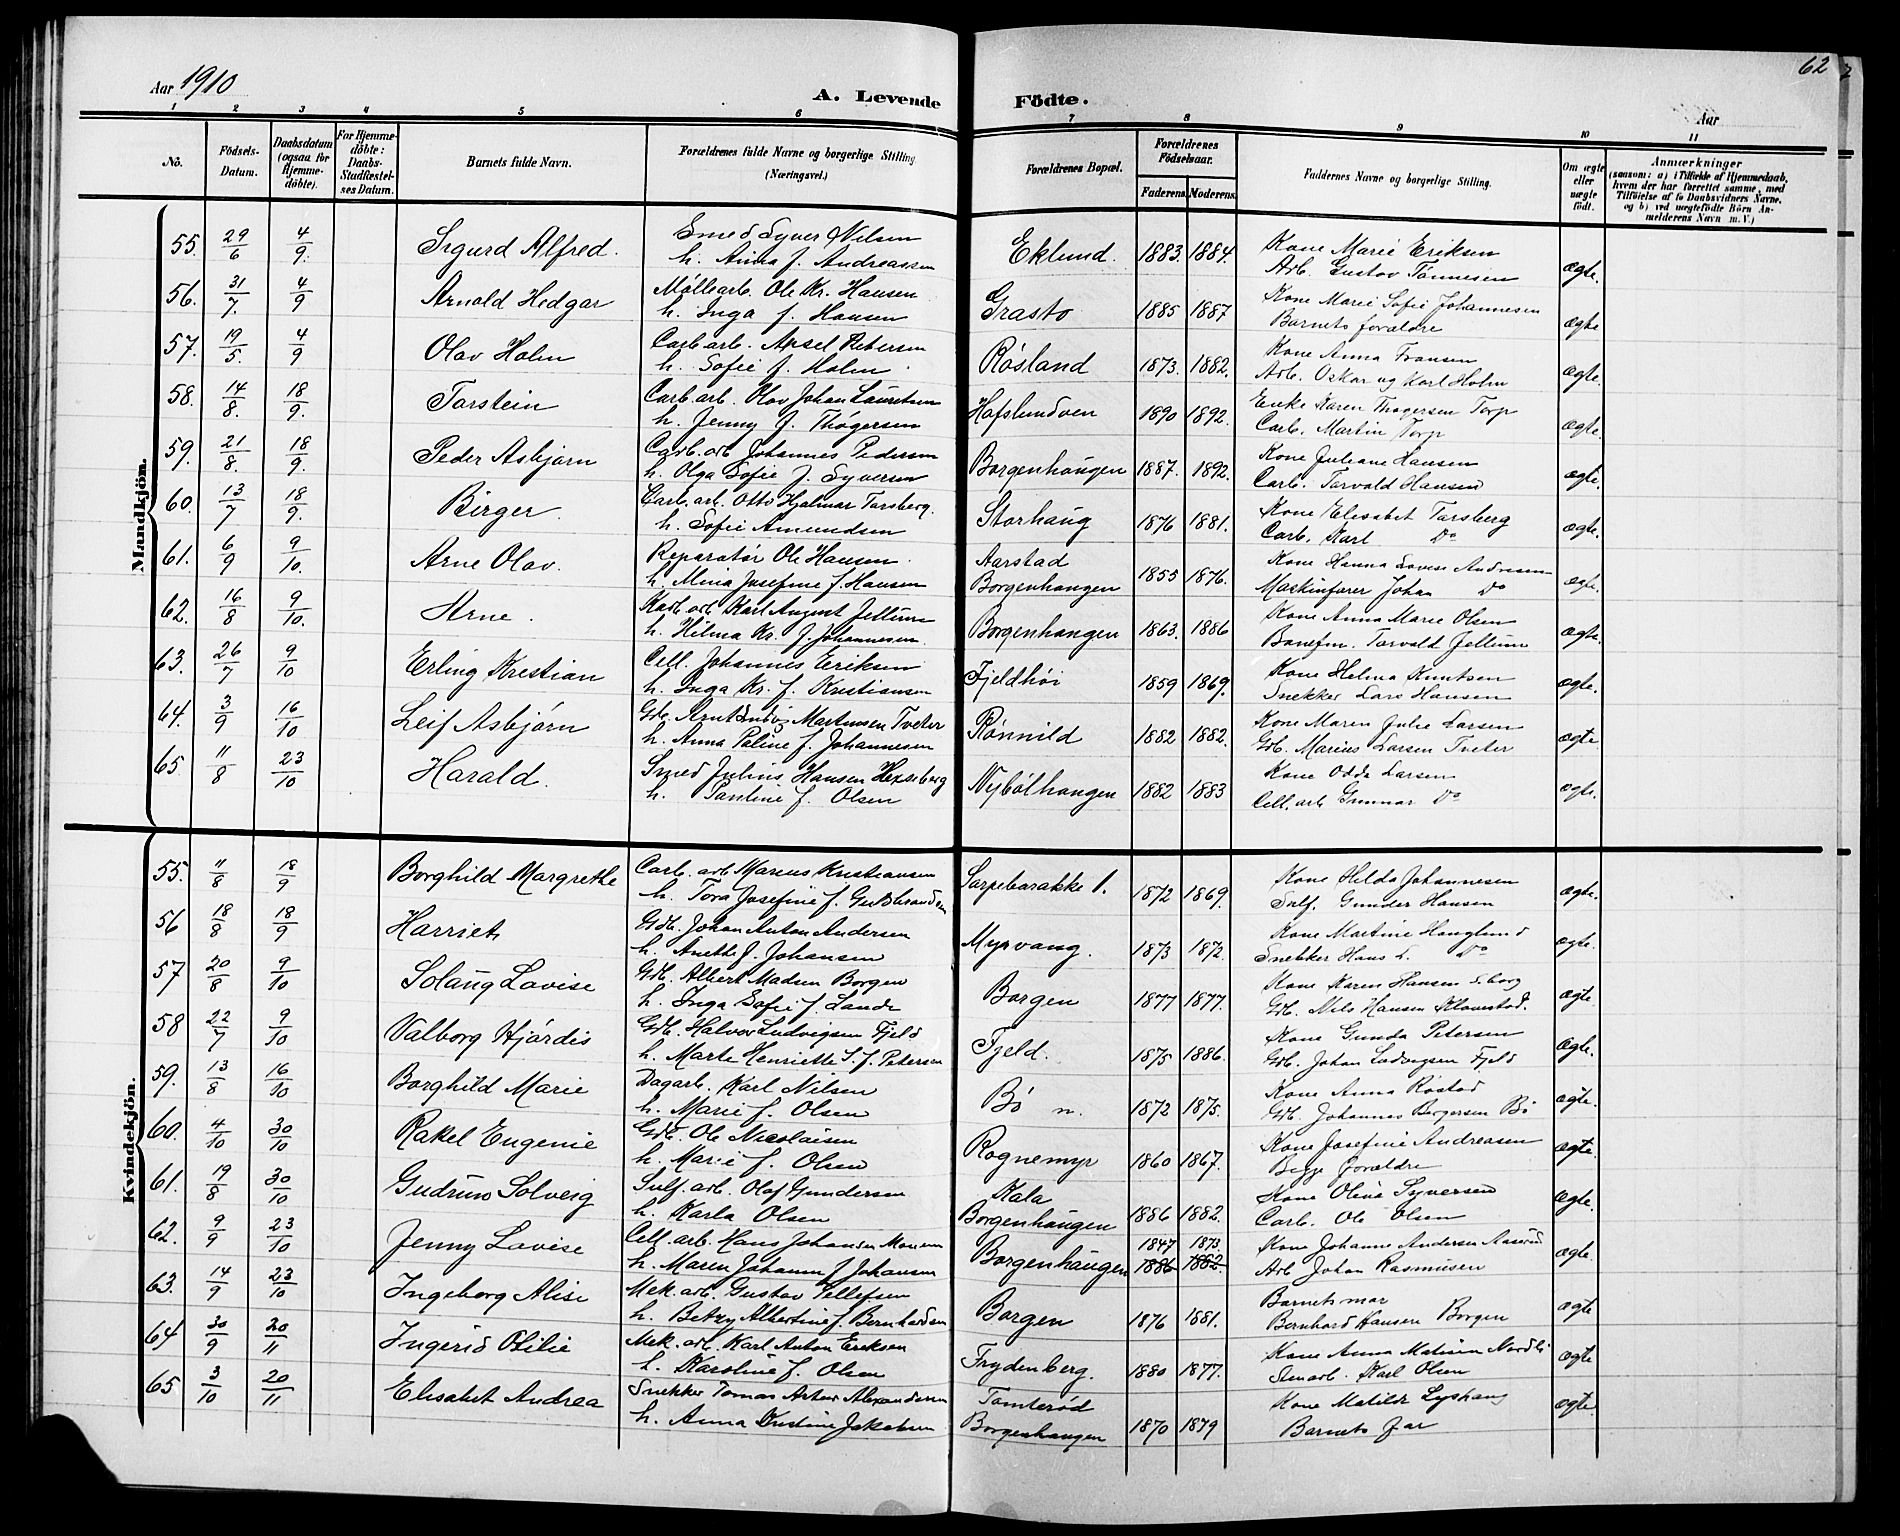 Aar 1910
A. Levende Födte.
62
Aar
1 2 3 4 5 6 7 8 9 10 11
No. Födsels-Datum. Daabsdatum (ogsaa for Hjemme-döbte). For Hjemme-döbte: Daabs-Stadfæstel-ses Datum. Barnets fulde Navn. Forældrenes fulde Navne og borgerlige Stilling. (Næringsvei.) Forældrenes Bopæl. Forældrenes Födselsaar. Faderens. Moderens. Faddernes Navne og borgerlige Stilling. Om ægte eller uægte födt. Anmærkninger (saasom: a) i Tilfælde af Hjemmedaab, hvem der har forrettet samme, med Tilföielse af to Daabsvidners Navne, og b) ved uægtefödte Börn An-melderens Navn m. V.)
Mandkjön.
55. 29/6 4/9. Sigurd Alfred. Smed Syver Nilsen Eklund. 1883. 1884. Kone Marie Eriksen
h. Anna f. Andreassen Arb. Gustav Tønnesen ægte.
56. 31/7. 4/9 Arnold Hedgar Møllearb. Ole Kr. Hansen Grasto 1885 1887 Kone Marie Sofie Johannesen
h. Inga f. Hansen Barnets forældre ægte
57. 19/5. 4/9 Olav Holm Carb arb. Aksel Petersen Røsland 1873. 1882. Kone Anna Fransen
h. Sofie f. Holm Arb. Oskar og Karl Holm ægte.
58. 14/8. 18/9. Torstein Carb. arb. Olav Johan Lauritsen Hafslundven 1890 1892. Enke Karen Thøgersen Torp
h. Jenny J. Thøgersen Carb. Martin Torp ægte.
59. 21/8. 18/9. Peder Asbjørn Carb. arb Johannes Pedersen Borgenhaugen 1887. 1892. Kone Juliane Hansen
h. Olga Sofie f. Syversen Carb. Torvald Hansen ægte.
60. 13/7 18/9. Birger. Carb. arb. Otto Hjalmar Torsberg. Storhaug 1876 1881. Kone Elisabet Torsberg
h. Sofie Amundsen Carb. Karl Do ægte.
61. 6/9 9/10. Arne Olav. Reparatør Ole Hansen Aarstad Borgenhaugen 1855 1876. Kone Hanna Lovise Andresen
h. Mina Josefine f. Hansen Maskinfører Johan Do ægte.
62. 16/8 9/10. Arne. Karb. arb Karl August Jellum Borgenhaugen 1863. 1886 Kone Anna Marie Olsen
h. Hilma Kr. f. Johannesen Banefm. Torvald Jellum ægte.
63. 26/7 9/10 Erling Kristian Cell. Johannes Eriksen Fjeldhøi 1859 1869. Kone Helma Knutsen
h. Inga Kr. f. Kristiansen Snekker Lars Hansen ægte.
64. 3/9 16/10 Leif Asbjørn Gdb. Arnt Martinsen Tveter Rønnild 1882 1882. Kone Maren Julie Larsen
h. Anna Paline f. Johannesen Gdb. Marius Larsen Tveter ægte
65. 11/8 23/10 Harald. Smed Julius Hansen Hexeberg Nybølhaugen 1882 1883 Kone Odda Larsen
h. Pauline f. Olsen Cell. arb Gunnar Do ægte.
Kvindekjön.
55. 11/8 18/9 Borghild Margrethe Carb. arb Marius Kristiansen Sarpebarakke 1. 1872 1869. Kone Hilda Johannesen
h. Tora Josefine f. Gudbrandsen Sulf. Gunder Hansen ægte.
56 18/8 18/9 Harriet Gdb. Johan Anton Andersen Myrvang. 1873 1872. Kone Martine Hauglund
h. Anette f. Johansen Snekker Hans L. Do ægte.
57 20/8 9/10 Solaug Lovise Gdb. Albert Madsen Borgen Borgen 1877 1877. Kone Karen Hansen Sborg
h. Inga Sofie f. Lande Gdb. Nils Hansen Klavestad. ægte.
58 22/7 9/10 Valborg Hjørdis Gdb. Halvor Ludvigsen Fjeld Fjeld. 1875 1886. Kone Gunda Petersen
h. Marte Henriette S. f. Petersen Gdb. Johan Ludvigsen Fjeld ægte.
59. 13/8 16/10 Borghild Marie Dagarb. Karl Nilsen Bø n. 1872 1875. Kone Anna Røstad
h. Marie f. Olsen Gdb. Johannes Borgersen Bø ægte.
60. 4/10 30/10 Rakel Eugenie Gdb. Ole Nicolaisen Rognemyr 1860 1867. Kone Josefine Andreasen
h. Marie f. Olsen Begge forældre ægte.
61. 19/8 30/10 Gudrun Solveig Sulf. arb. Olaf Gundersen Kala Borgenhaugen 1886 1882. Kone Olina Syversen
h. Karla Olsen Carb. Ole Olsen ægte.
62. 9/9 23/10 Jenny Lovise Cell. arb. Hans Johansen Borgenhaugen 1847 1873. 1886 1882. Kone Johanne Andersen Aaserud
h. Maren Johanne f Johansen Arb Johan Rasmussen ægte.
63. 14/9 23/10 Ingeborg Alise Mek. arb. Gustav Tellefsen Borgen 1876 1881. Barnets mor
h. Betzy Albertine f. Bernhardsen Bernhard Hansen Borgen ægte
64 30/9 20/11 Ingerid Otilie Mek. arb. Karl Anton Eriksen Frydenberg. 1880 1877. Kone Anna Matisen Nordli
h. Karoline f. Olsen Stenarb. Karl Olsen ægte
65 3/10 20/11 Elisabet Andrea Snekker Tomas Artur Alexandersen Tomterød Borgenhaugen 1870 1879 Kone Matilde Lyshaug
h. Anna Kristine Jakobsen Barnets far ægte.